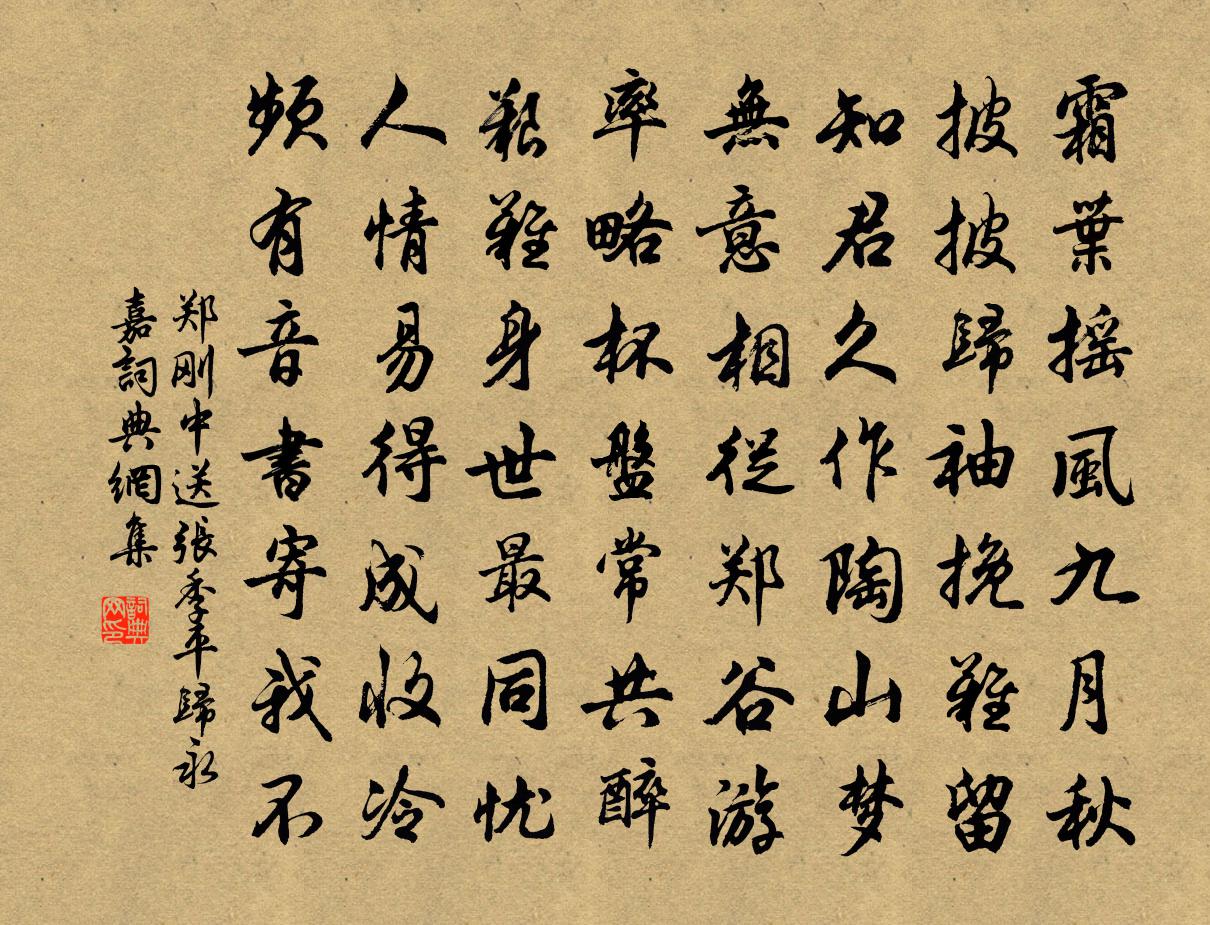 霜葉摇風九月秋
披披歸袖挽難留
知君久作陶山梦
無意相從郑谷游
率略杯盤常共醉
艱難身世最同忧
人情易得成收冷
频有音書寄我不
郑刚中送張季平歸永
嘉詞典網集
詞典
网印